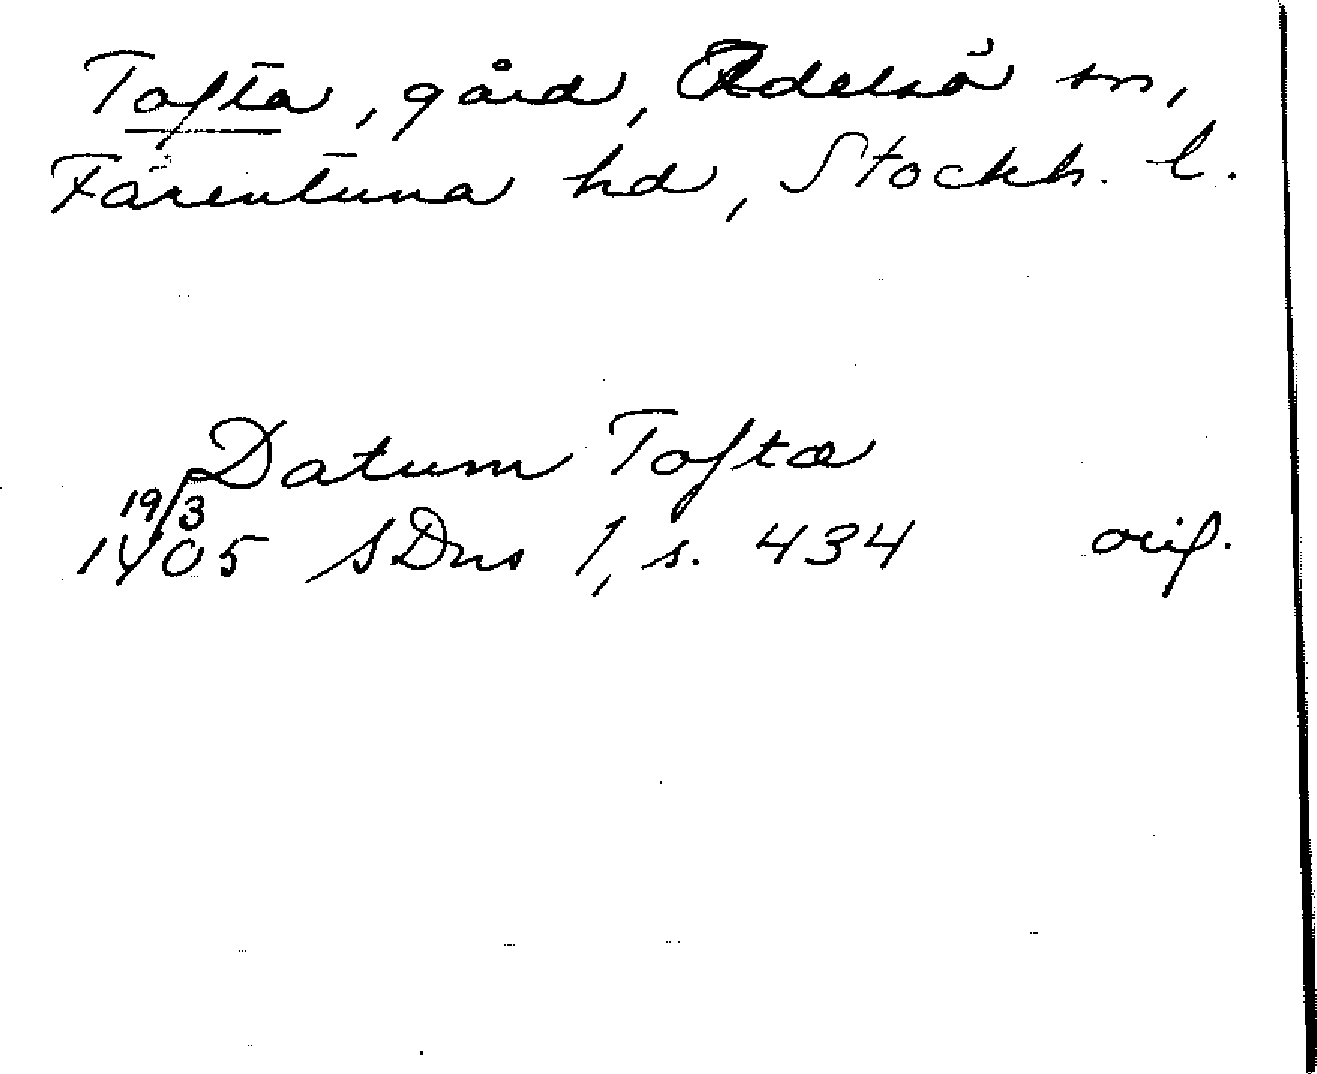 Tofta, gård, Adelsö sn,
Färentuna hd, Stockh. l.
Datum Tofta
19/3
1405 SDns 1, s. 434 orig.